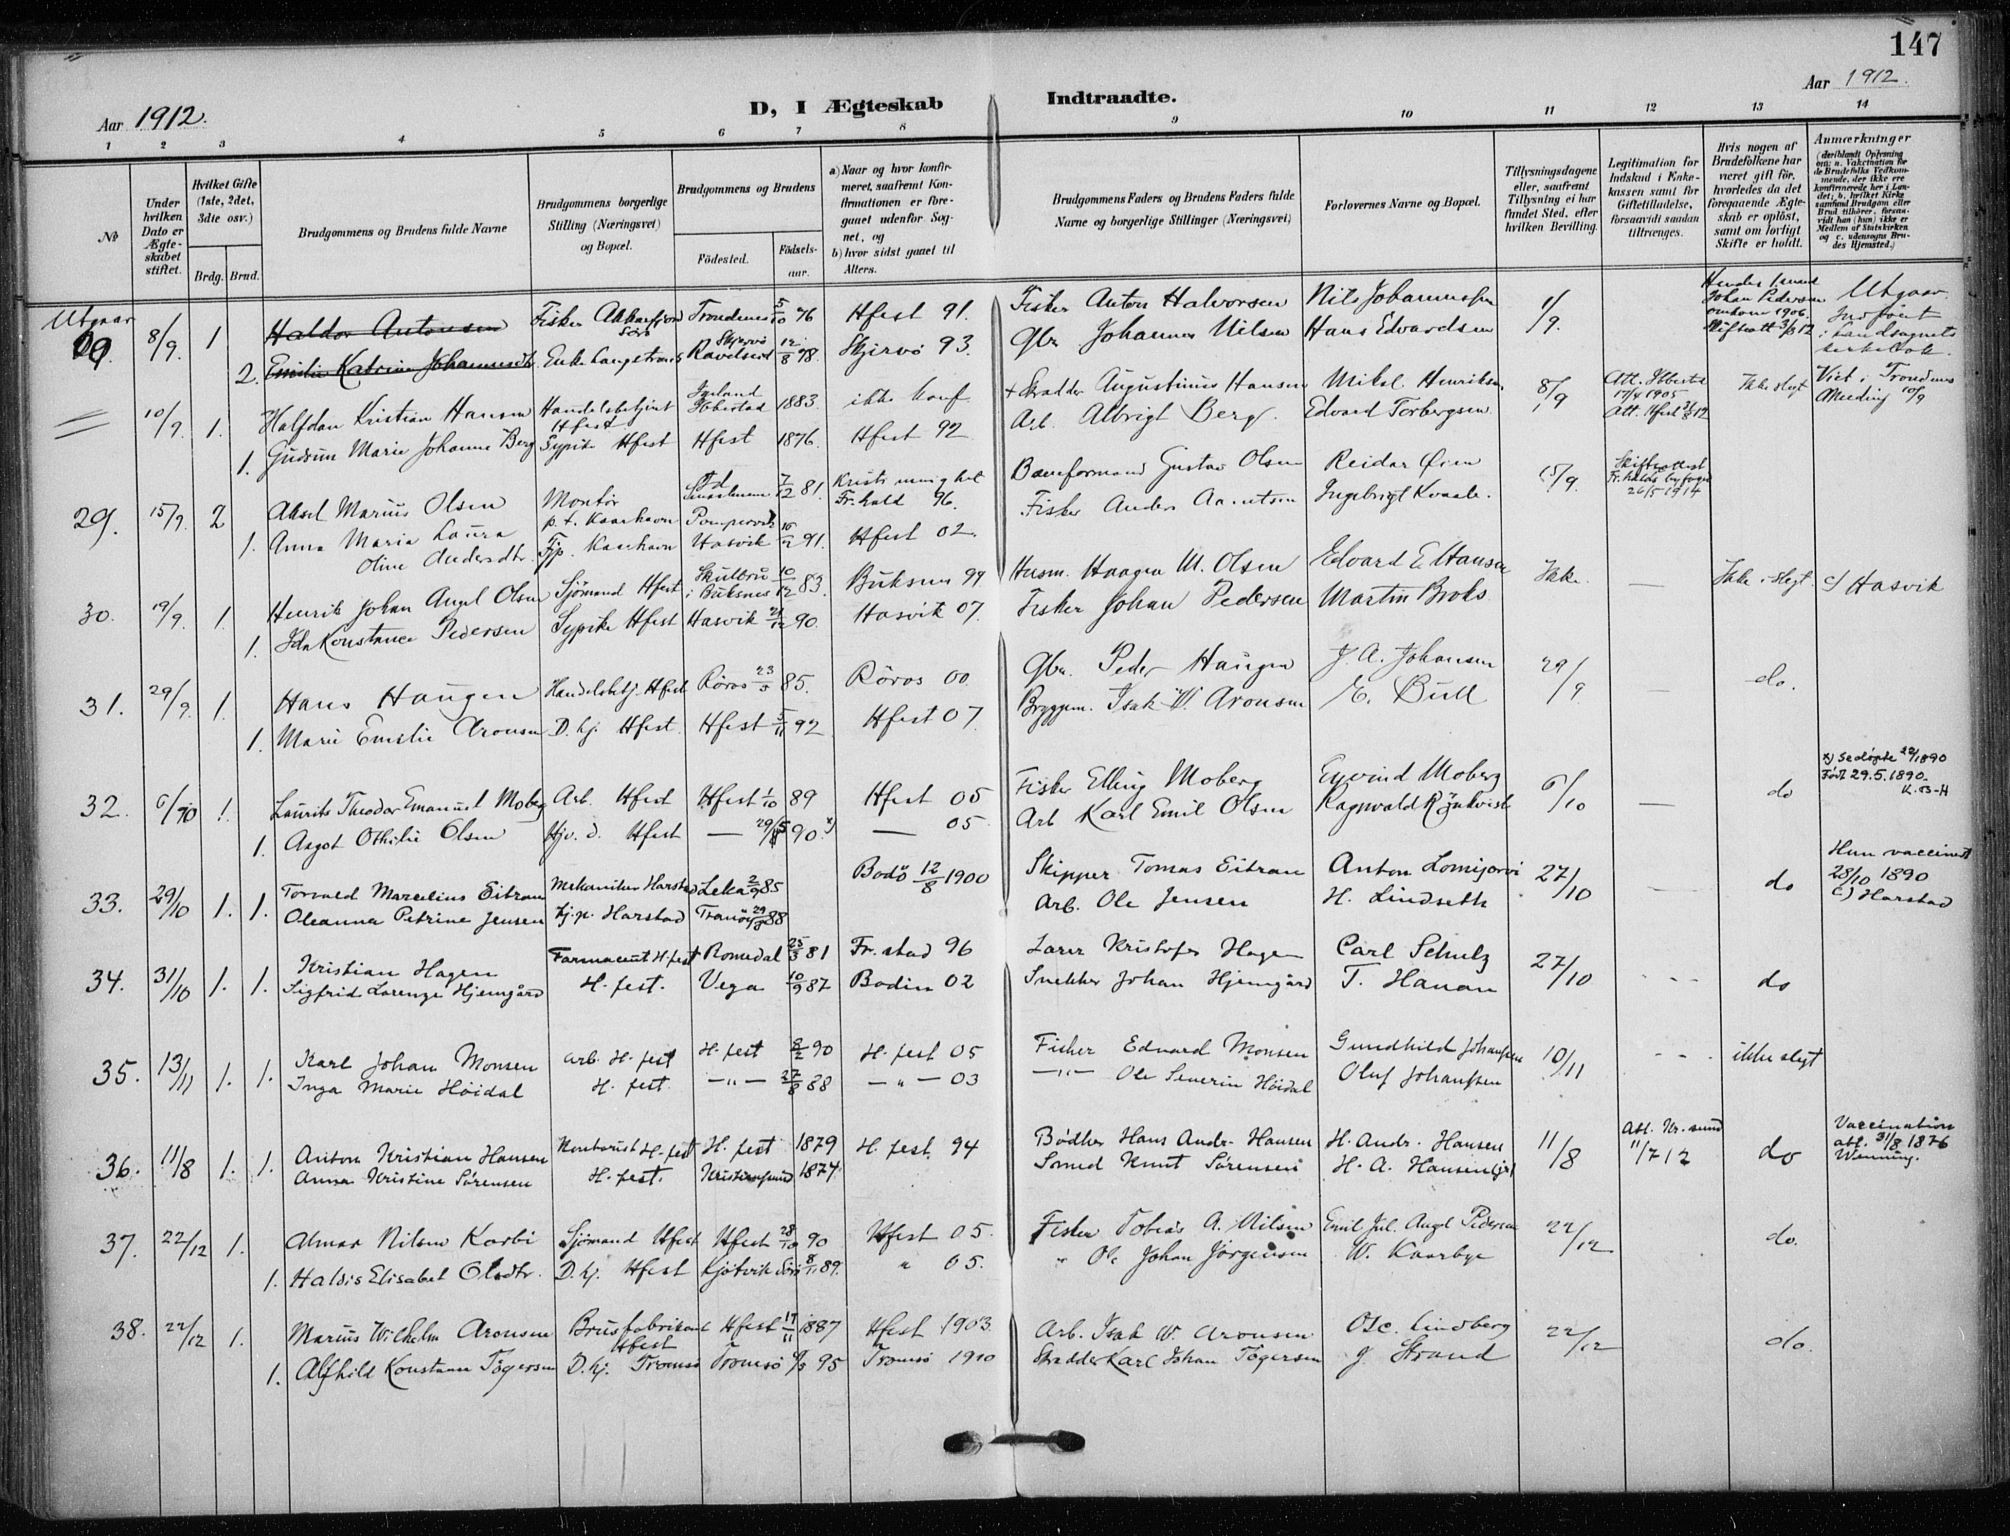 147
Aar 1912.
D, I Ægteskab Indtraadte.
Aar 1912.
1 2 3 4 5 6 7 8 9 10 11 12 13 14
№
Under hvilken Dato er Ægteskabet stiftet.
Hvilket Gifte (1ste, 2det, 3die osv.)
Brdg. Brud.
Brudgommens og Brudens fulde Navne
Brudgommens borgerlige Stilling (Næringsvei) og Bopæl.
Brudgommens og Brudens
Fødested. Fødselsaar.
a) Naar og hvor konfirmeret, saafremt Konfirmationen er foregaaet udenfor Sognet, og
b) hvor sidst gaaet til Alters.
Brudgommens Faders og Brudens Faders fulde Navne og borgerlige Stillinger (Næringsvei)
Forlovernes Navne og Bopæl.
Tillysningsdagene eller, saafremt Tillysning ei har fundet Sted, efter hvilken Bevilling.
Legitimation for Indskud i Enkekassen samt for Giftetilladelse, forsaavidt saadan tiltrænges.
Hvis nogen af Brudefolkene har været gift før, hvorledes da det foregaaende Ægteskab er opløst, samt om lovligt Skifte er holdt.
Anmærkninger
(deriblandt Oplysning om: a. Vakcination for de Brudefolks Vedkommende, der ikke ere konfirmerede her i Landet; b. hvilket Kirkesamfund Brudgom eller Brud tilhører, forsaavidt han (hun) ikke er Medlem af Statskirken og c. udensogns Brudes Hjemsted.)
Utgaar 8/9. 1 Haldor Antonsen Fisker Trondenes 5/10 76 Hfest 91. Fisker Anton Halvorsen Nils Johannessen 1/9. Utgaar.
2. Emilie Katrine Johannesdtr Enke Skjervö 12/8 Skjervö 93. Gbr Johannes Nilsen Hans Edvardsen Indført i Landsognets kirkebok.
10/9. 1. Halfdan Kristian Hansen Handelsbetjent Hfest Ibbestad 1883. ikke konf + Skrædder Augustinus Hansen Mikal Henriksen 8/9 Att. Ibbestad Ikke slegt Viet i Trondenes
1. Gudrun Marie Johanne Berg Sypike Hfest Hfest 1876. Hfest 92 Arb. Albrigt Berg. Edvard Torbergsen Att. Hfest Melding 10/9
29. 15/9 2 Aksel Marius Olsen Montör p. t. Kaarhavn 7/12 81. Fr. hald 96. Baneformand Gustav Olsen Reidar Øien 15/9. Skifteattest Fr.halds byfoged 26/5 1914
1. Anna Maria Laura Oline Andersdtr. Tjp. Kaarhavn Hasvik 91. Hfest 02. Fisker Anders Ingebrigt Kvaale.
30. 19/9. 1. Henrik Johan Angel Olsen Sjömand Hfest i Buksnes 10/12 83. Buksnes 99 Husm. Haagen M. Olsen Edvard E Hansen Ikke. — Ikke i slegt. c/ Hasvik
1. Ida Konstance Pedersen Sypike Hfest Hasvik 90. Hasvik 07. Fisker Johan Pedersen Martin Broks
31. 29/9. 1. Hans Haugen Handelsbetj. Hfest Röros 23/5 85. Röros 00. Gbr. Peder Haugen J. A. Johansen 29/9 — do.
1. Marie Emelie Aronsen D. hj. Hfest. Hfest 5/11 92 Hfest 07 Bryggem. Isak W. Aronsen E. Bull
32. 6/10 1. Laurits Theodor Emanuel Moberg Arb. Hfest Hfest 1/10 89 Hfest 05 Fisker Elling Moberg Eyvind Moberg 6/10 — do x) Født 29.5.1890.
1. Aagot Othilie Olsen Hjv. d. Hfest — 29/5 90 x) — 05. Arb Karl Emil Olsen Ragnvald Rönkvist
33. 29/10 1. 1. Torvald Marcelius Eitran Mekaniker Harstad Leka 2/9 85 Bodö 12/8 1900 Skipper Tomas Eitran Anton Lomijervi 27/10 — do Hun vaccineret 28/10 1890 c) Harstad
Oleanna Petrine Jensen Hj.p. Harstad Tranöy 88 Arb. Ole Jensen H. Lindseth
34. 31/10 1. 1. Kristian Hagen Farmaceut H.fest Romedal 25/3 81 Fr.stad 96 Lærer Kristofer Hagen Carl Schulz 27/10 - - - do
Sigfrid Lorenze Hjemgård H. fest. Vega 10/9 87 Bodin 02 Snekker Johan Hjemgård T. Hanan
35. 13/11 1. 1. Karl Johan Monsen arb. H. fest H. fest 8/2 90 H. fest 05 Fisker Edvard Monsen Gundhild Johansen 10/11 - - - ikke slegt
Inga Marie Höidal H. fest. — " — 27/8 88 — " — 03 — " — Ole Severin Höidal Oluf Johanssen
36. 11/8 1. 1. Anton Kristian Hansen Kontorist H. fest H. fest 1879 H. fest. 94 Bødker Hans Andr. Hansen H. Andr. Hansen 11/8 Att. Kr.sund 11/7 12 do Vaccination att. 31/8 1876 Wenning.
Anna Kristine Sörensen H. fest. Kristiansund 1874 Smed Knut Sörensen H. A. Hansen (jr)
37. 22/12 1. Almar Nilsen Korbi Sjömand Hfest Hfest 28/10 90 Hfest 05. Fisker Tobias A. Nilsen Emil Jul. Angel Pedersen 22/12 do.
1. Haldis Elisabet Olsdtr. D. hj. Hfest Kjötvik Sörö 8/11 89. " 05. " Ole Johan Jörgensen W. Kaarbye
38. 22/12 1. Marius Wilhelm Aronsen Brusfabrikant Hfest Hfest 17/11 1887 Hfest 1903. Arb. Isak W. Aronsen Osc. Lindberg 22/12 do.
1. Alfhild Konstanse Tögersen D. hj. Tromsö Tromsö 95 Tromsö 1910 Skrædder Karl Johan Tögersen J Strand